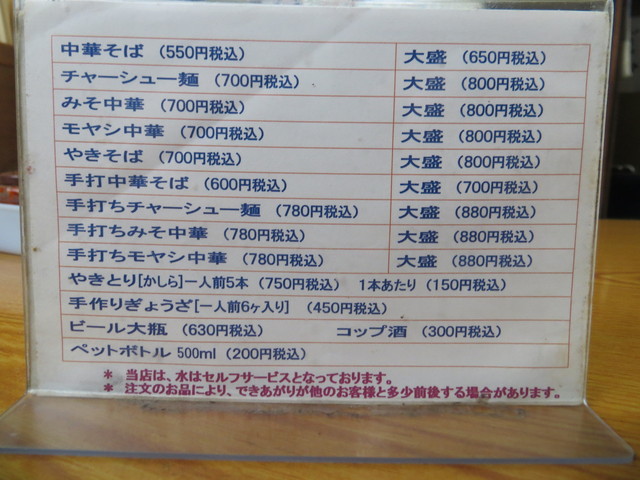 中華そば (550円税込) 大盛 (650円税込)
チャーシュー麺 (700円税込) 大盛 (800円税込)
みそ中華 (700円税込) 大盛 (800円税込)
モヤシ中華 (700円税込) 大盛 (800円税込)
やきそば (700円税込) 大盛 (800円税込)
手打中華そば (600円税込) 大盛 (700円税込)
手打ちチャーシュー麺 (780円税込) 大盛 (880円税込)
手打ちみそ中華 (780円税込) 大盛 (880円税込)
手打ちモヤシ中華 (780円税込) 大盛 (880円税込)
やきとり[かしら]一人前5本 (750円税込) 1本あたり (150円税込)
手作りぎょうざ[一人前6ヶ入り] (450円税込)
ビール大瓶 (630円税込) コップ酒 (300円税込)
ペットボトル 500ml (200円税込)
* 当店は、水はセルフサービスとなっております。
* 注文のお品により、できあがりが他のお客様と多少前後する場合があります。